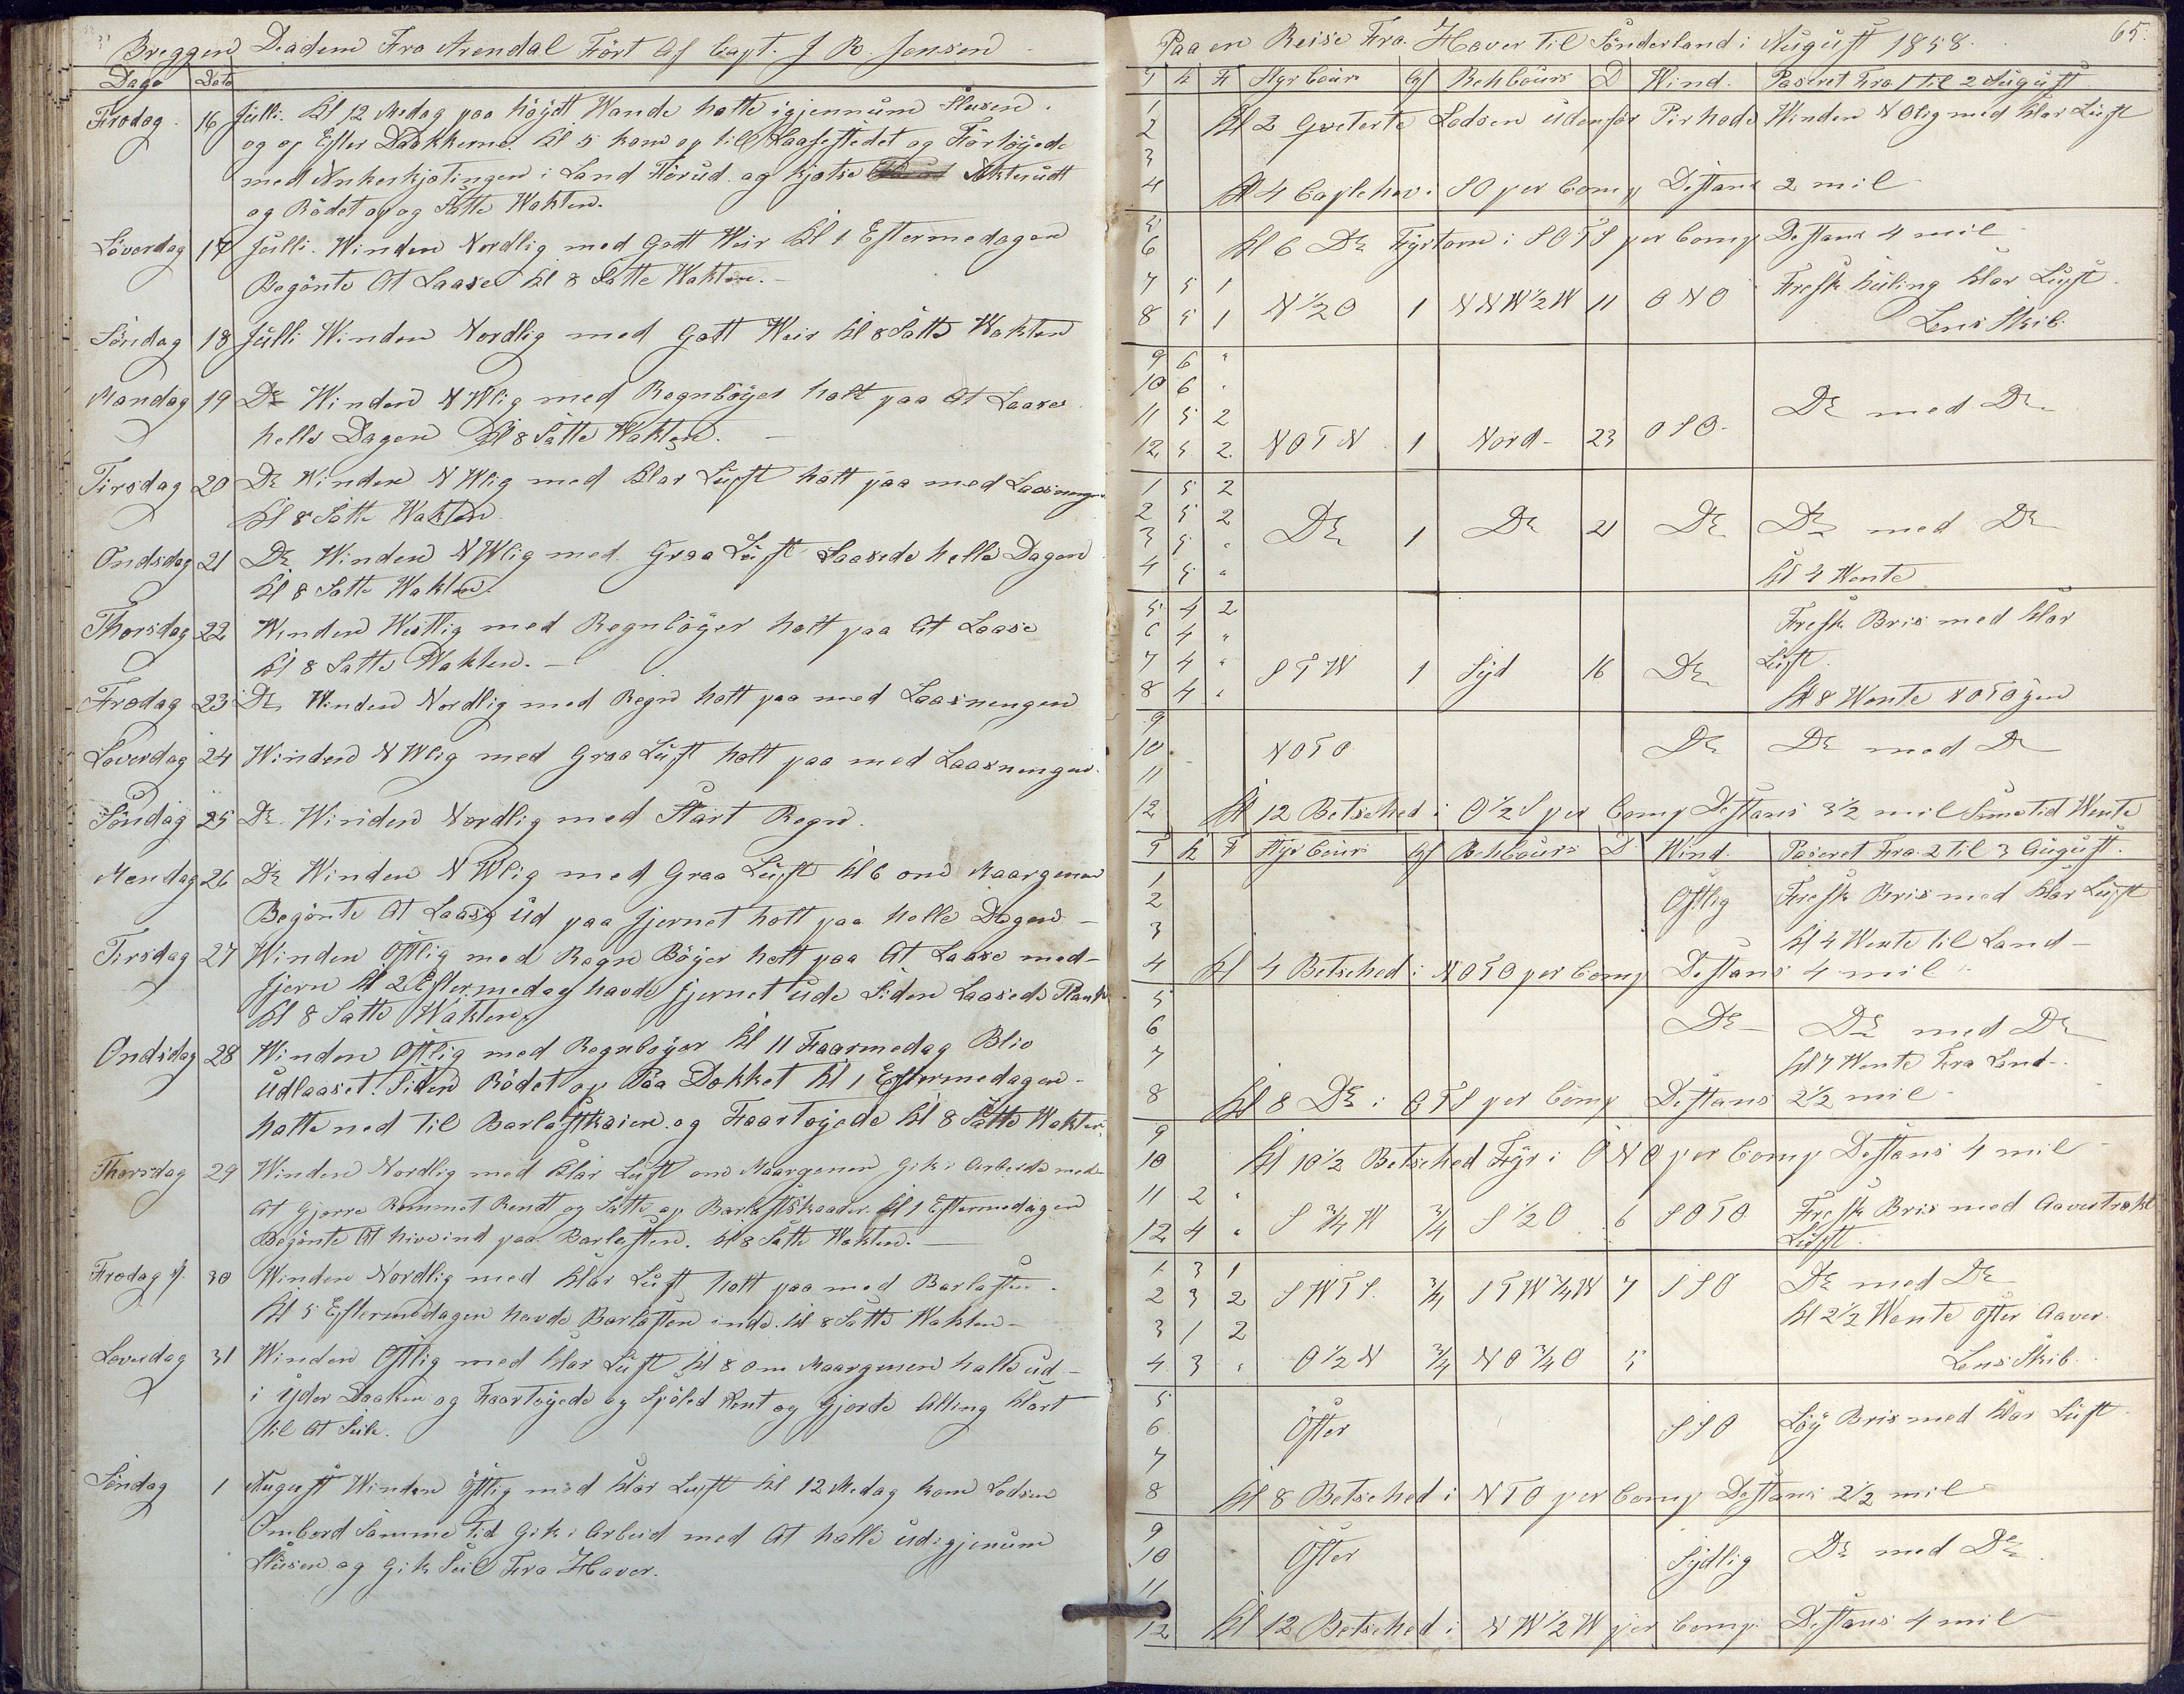 Breggen Deadem Fra Arendal Fört Af Capt. J R. Jensen
Dage Dato
Fredag 16 Julli. Kl 12 Medag paa höyett Wande hatte igjennum Slusen.
og op Efter Dokkerne. Kl 5 kom op till Laasestedet og Förtöyede
med Ankerkjetingen i Land Förud. og kjetse Akterudt
og Rödet op og Satte Wakten.
Löverdag 17 Julli. Winden Nordlig med Godt Weir Kl 1 Eftermedagen
Begönte At Laase Kl 8 Satte Wakten.
Söndag 18 Julli Winden Nordlig med Gott Weir Kl 8 Satte Wakten
Mandag 19 Do Winden NWlig med Regnböyer holt paa At Laase
helle Dagen Kl 8 Satte Wakten.
Tirsdag 20 Do Winden NWlig med Klar Luft holt paa med Laasningen
Kl 8 Satte Wakten.
Ondsdag 21 Do Winden NWlig med Graa Luft Laasede helle Dagen
Kl 8 Satte Wakten.
Thorsdag 22 Winden Westlig med Regnböyer holt paa At Laase
Kl 8 Satte Wakten.
Fredag 23 Do Winden Nordlig med Regn holt paa med Laasnengen
Löverdag 24 Winden NWlig med Graa Luft holt paa med Laasnengen.
Söndag 25 Do Winden Nordlig med Start Regn.
Mendag 26 Do Winden NWlig med Graa Luft Kl 6 om Maargenen
Begönte At Laase Ud paa Jjernet holt paa helle Dagen
Tirsdag 27 Winden Östlig med Regn Böyer holt paa At Laase med
Jjern Kl 2 Eftermedag havde Jjernet ude Siden Laasede Plank
Kl 8 Satte Wakten.
Ondsdag 28 Winden Östlig med Regnböyer Kl 11 Faarmedag Blev
Udlaaset. Siden Rödet op Paa Dekket Kl 1 Eftermedagen
hatte ned til Barlastkaien og Faartöyede Kl 8 Satte Wakten
Thorsdag 29 Winden Nordlig med Klar Luft om Maargenen Gik i Arbeide med
At Gjørre Rummet Rendt og Satte op Barlastskaader. Kl 1 Eftermedagen
Begönte At hive ind paa Barlasten. Kl 8 Satte Wakten.
Fredag 30 Winden Nordlig med Klar Luft holt paa med Barlasten.
Kl 5 Eftermedagen havde Barlasten inde. Kl 8 Satte Wakten
Löverdag 31 Winden Östlig med Klar Luft Kl 8 om Maargenen halte ud
i yder Daaken og Faartöyede og Spöled Rent og Gjorde Alting Klart
til At Seile.
Söndag 1 August Winden Östlig med Klar Luft Kl 12 Medag kom Lodsen
Ombord Samme tid Gik i Arbeid med At halle Ud igjenum
Slusen og Gik Seil Fra Haver.
65.
Paa en Reise Fra Haver til Sönderland i August 1858.
T K F Styr Cours Af Behl Cours D Wind. Paseret Fra 1 til 2 August
1
2 Kl 2 Qviterte Lodsen Udenfor Pirhode Winden NOlig med Klar Luft
3
4 Kl 4 Caplehev i SO per Comp Destans 2 mil
5
6 Kl 6 Do Fyrtorn i SOTS per Comp Destans 4 mil
7 5 1 Fresk Kuling Klar Luft.
8 5 1 N 1/2 O 1 NNW 1/2 W 11 ONO Lens Skib.
9 6 "
10 6 "
11 5 2 Do med Do
12 5 2 NOTN 1 Nord 23 OSO.
1 5 2
2 5 2 Do 1 Do 21 Do Do med Do
3 5 "
4 5 " Kl 4 Wente
5 4 2 Fresk Bris med Klar
6 4 "
7 4 " STW 1 Syd 16 Do Luft.
8 4 " Kl 8 Wente NOTO igen
9
10 NOTO Do Do med Do
11
12 Kl 12 Betsehed i O 1/2 S per Comp Destans 3 1/2 mil Sametid Wente
T K F Styr Cours Af Behl Cours D Wind. Paseret Fra 2 til 3 August.
1
2 Östlig Fresk Bris med Klar Luft
3 Kl 4 Wente til Land
4 Kl 4 Betsehed i NOTO per Comp Destans 4 mil
5
6 Do Do med Do
7 Kl 7 Wente Fra Land
8 Kl 8 Do i OTS per Comp Destans 2 1/2 mil
9
10 Kl 10 1/2 Betsehed Fyr i ONO per Comp Destans 4 mil
11 2 " Fresk Bris med Aavertrekt
12 4 " S 3/4 W 3/4 S 1/2 O 6 SOTO Luft.
1 3 1
2 3 2 SWTS. 3/4 STW 1/4 W 7 SSO Do med Do
3 1 2 Kl 2 1/2 Wente Öster Aaver.
4 3 " O 1/2 N 3/4 NO 3/4 O 5 Lens Skib.
5
6 Öster SSO Löy Bris med Klar Luft
7
8 Kl 8 Betsehed i NTO per Comp Destans 2 1/2 mil
9
10 Öster Sydlig Do med Do
11
12 Kl 12 Betsehed i NW 1/2 W per Comp. Destans 4 mil